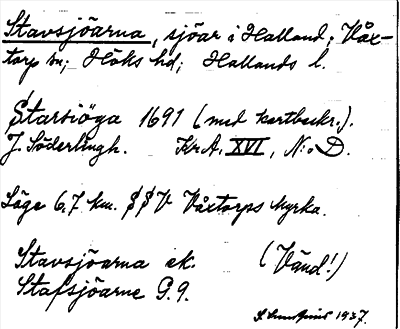 Stavsjöarna, sjöar i Halland; Våx-
torp sn; Höks hd; Hallands l.
Starsiöga 1691 (med kartbeskr.).
J. Söderlingh. Kr. A. XVI, N:o D.
Läge 6,7 km. SSV Våxtorps kyrka.
Stavsjöarna ek. (Vänd!)
Stafsjöarne G.9.
1937.